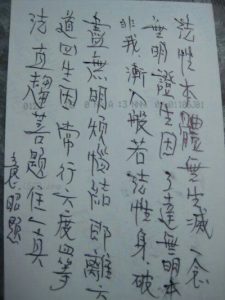 法性本體無生滅一念
無明證生因了達無明本
非我漸入般若法性身破
盡無明煩惱結即離六
道四生因常行六度四等
法直趨菩提住人真
袁昭題